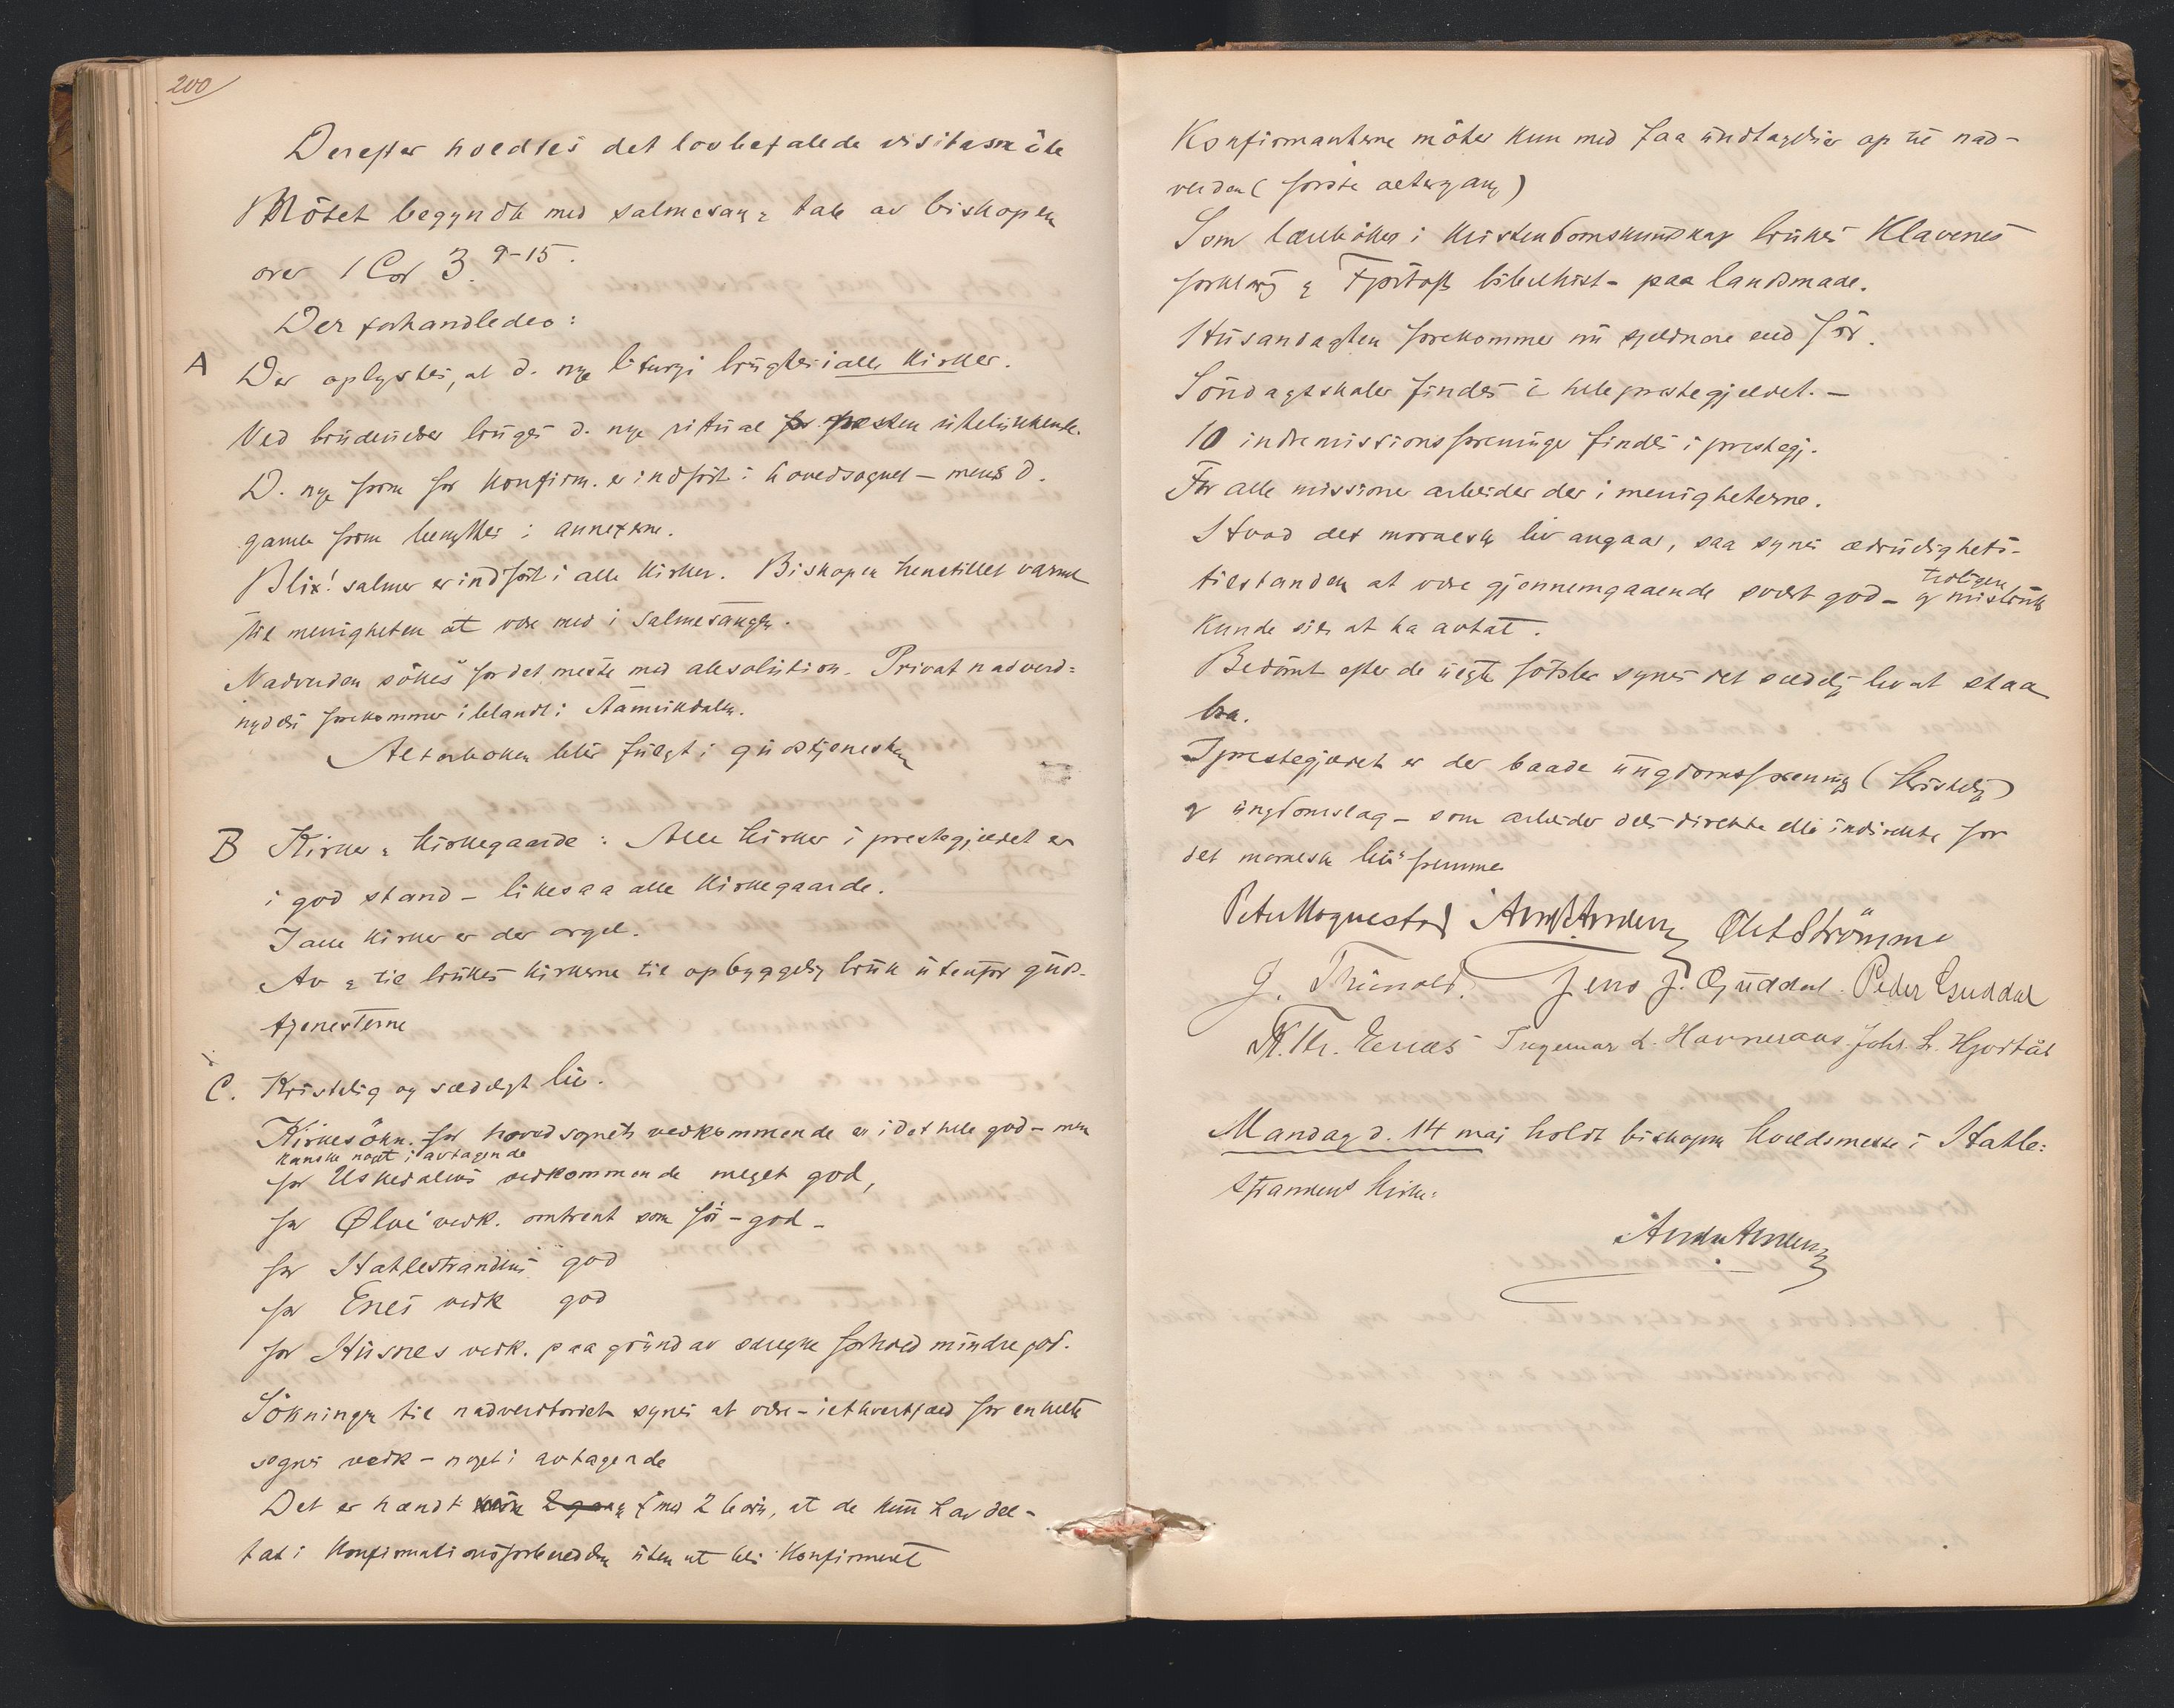 200
Derefter holdtes det lovbefalede visitasmöte
Mötet begyndte med salmesang & tale av biskopen
over 1 Cor 3. 9-15.
Der forhandledes:
A Der oplystes, at d. nye liturgi brugtes i alle kirker.
Ved brudevielser bruges d. nye ritual for næsten utelukkende.
D. nye form for konfirm. er indfört i hovedsognet – mens d.
gamle form benyttes i annexerne.
Blix' salmer er indfört i alle kirker. Biskopen henstillet varmt
til menigheten at være med i salmesangen.
Nadverden sökes for det meste med absolution. Privat nadverd-
nydelse forekommer iblandt i Aamvikdalen.
Alterboken blir fulgt i gudstjenesten
B Kirker & kirkegaarde: Alle kirker i prestegjeldet er
i god stand – likesaa alle kirkegaarde.
I alle kirker er der orgel.
Av & til brukes kirkerne til opbyggelig bruk utenfor guds-
tjenesterne
C. Kristelig og sædeligt liv.
Kirkesökn. for hovedsognets vedkommende er i det hele god – men
kanske noget i avtagende
for Uskedalens vedkommende meget god,
for Ølve vedk. omtrent som för – god –
for Hatlestrandens " god
for Enes vedk god
for Husnes vedk. paa grund av særegne forhold mindre god.
Sökningen til nadverdbordet synes at være – i ethvertfald for enkelte
sognes vedk – noget i avtagende
Det er hændt 2 gang med 2 barn, at de kun har del-
tat i konfirmationsforberedelsen uten at bli konfirmert
Konfirmanterne möter kun med faa undtagelser op til nad-
verden (förste altergang)
Som læreböker i kristendomskundskap brukes Klavenes
forklaring & Fjørtofts bibelhist – paa landsmaal.
Husandagten forekommer nu sjeldnere end för.
Söndagsskoler findes i hele prestegjeldet. –
10 indremissionsforeninger findes i prestegj.
For alle missioner arbeider der i menigheterne.
Hvad det moralske liv angaar, saa synes ædruelighets-
tilstanden at være gjennemgaaende svært god – & misbruk
kunde sies at ha avtat.
Bedömt efter de uegte födsler synes det sædelig liv at staa
bra.
I prestegjeldet er der baade ungdomsforening (kristelig)
& ungdomslag – som arbeider dels direkte eller indirekte for
det moralske livs fremme
Peter Hognestad Olaf Strömme
J. Jens J. Guddal. Peder Guddal
Ingemar L. Havneraas Johs. L. Hjortås
Mandag d. 14 mai holdt biskopen kveldsmesse i Hatle-
strandens kirke.